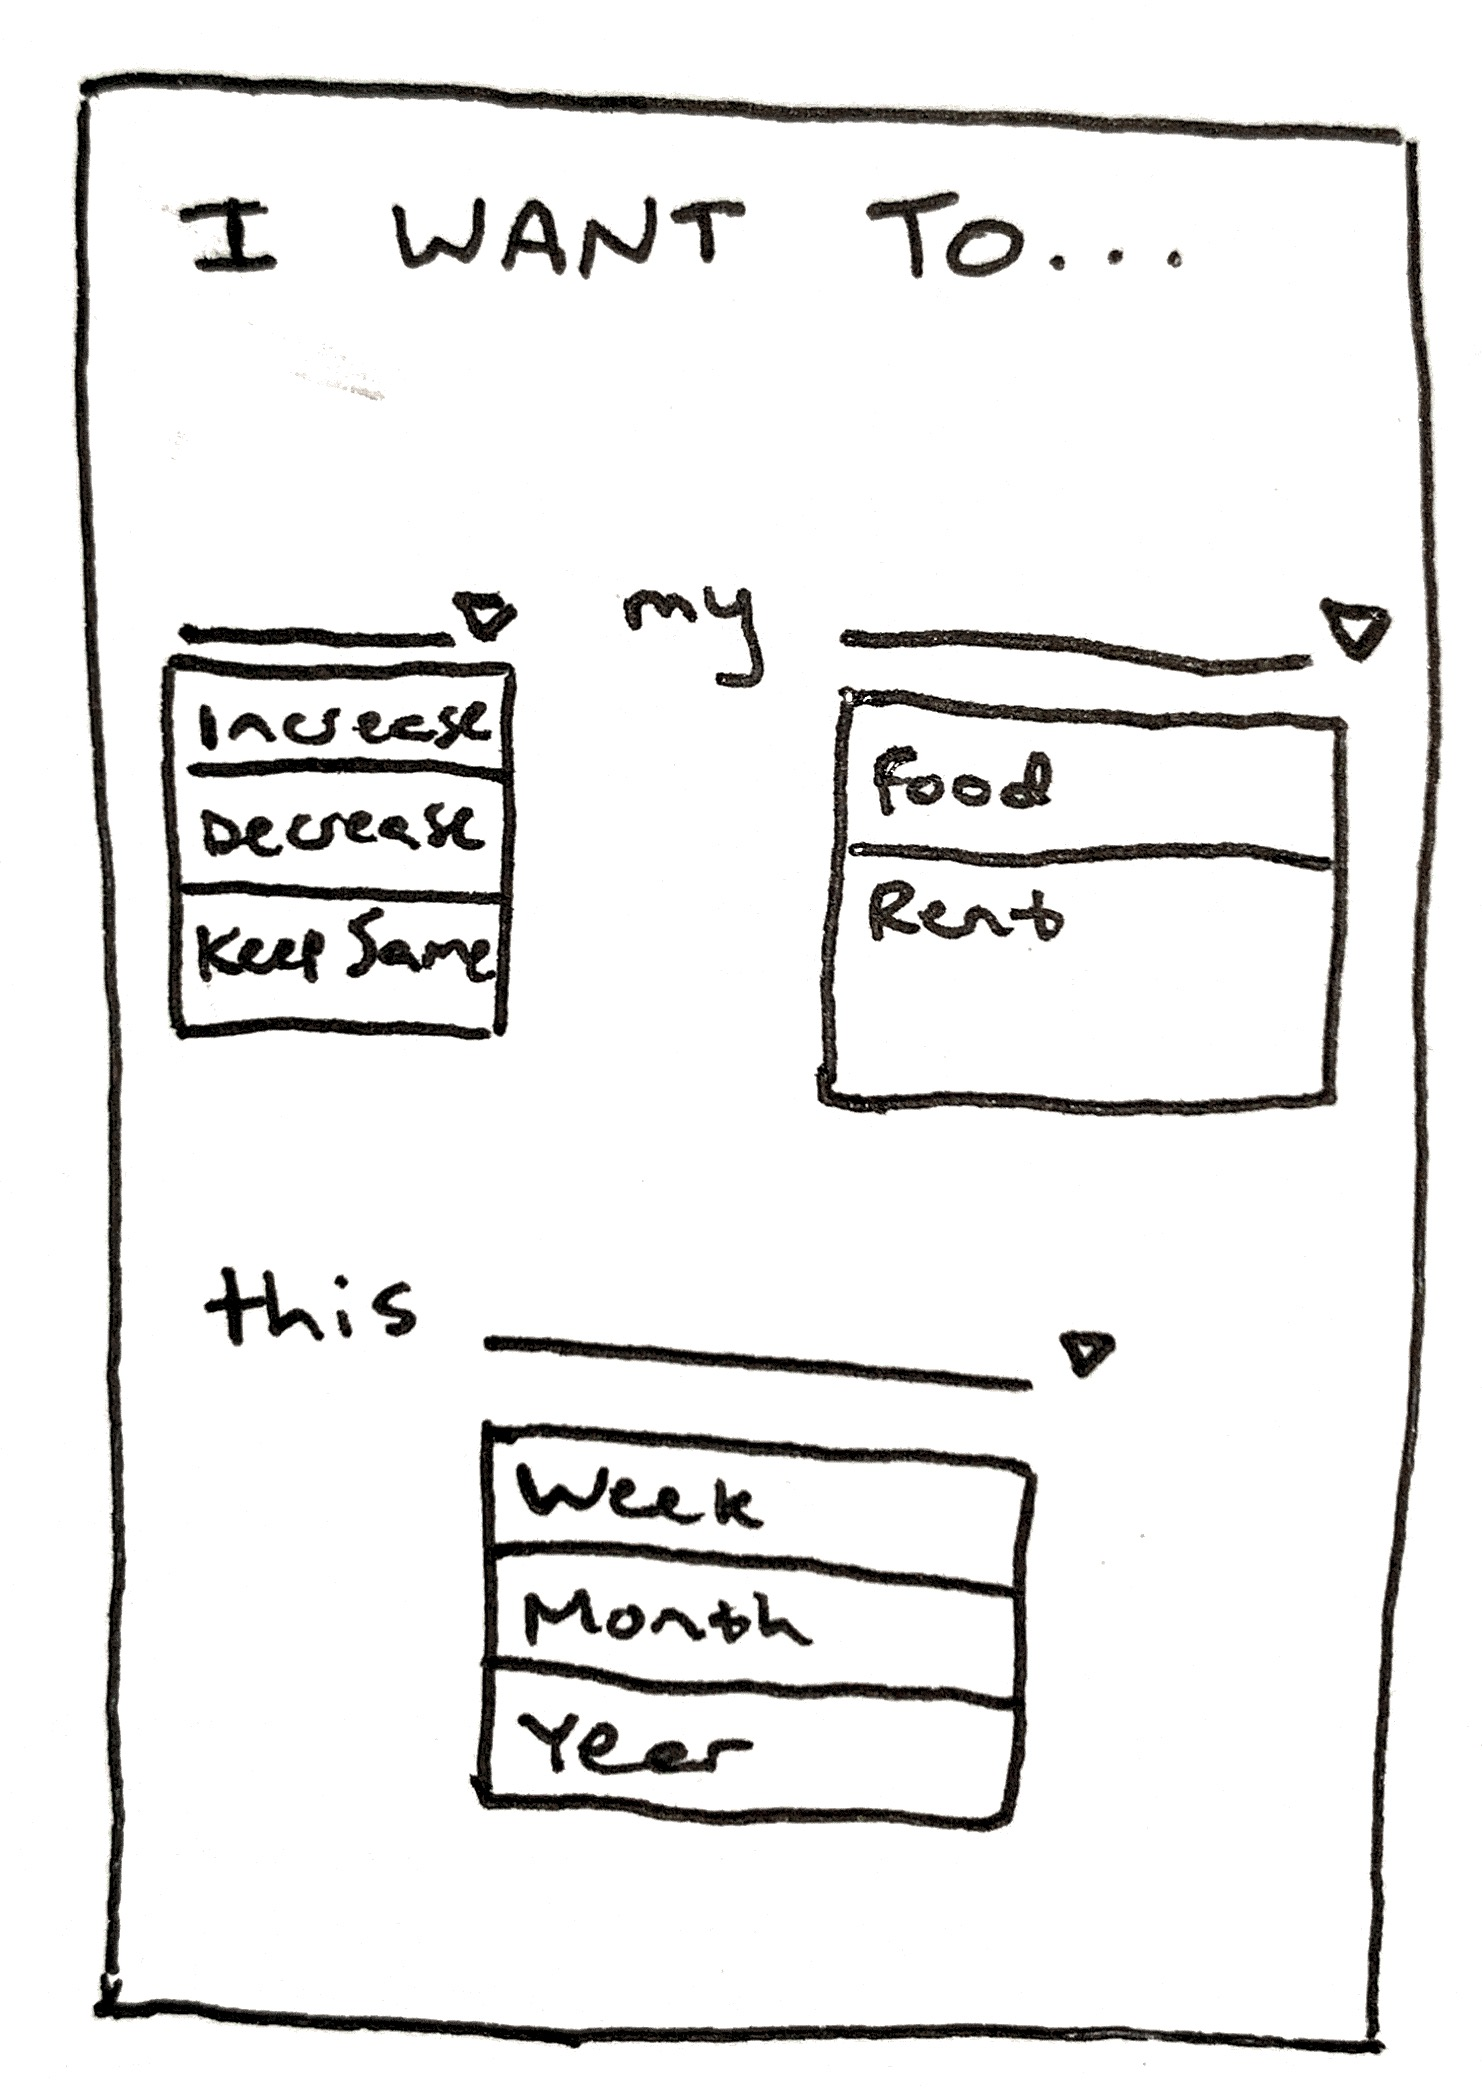 I WANT TO...
my
Increase
Decrease
Keep Same
Food
Rent
this
Week
Month
Year